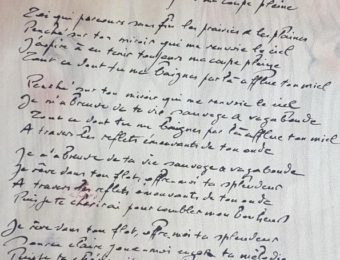 ma coupe pleine
Toi qui parcours sans fin les prairies & les plaines
Penché sur ton miroir qui me renvoie le ciel
J'aspire à en tenir toujours ma coupe pleine
Tout ce dont tu me baignes par là afflue ton miel
Penché sur ton miroir qui me renvoie le ciel
Je m'abreuve de ta vie sauvage & vagabonde
Tout ce dont tu me baignes par là afflue ton miel
A travers les reflets innovants de ton onde
Je m'abreuve de ta vie sauvage & vagabonde
Je rêve dans ton flot, offre-moi ta splendeur
A travers les reflets innovants de ton onde
Puis je te chérirai pour combler mon bonheur
Je rêve dans ton flot, offre moi ta splendeur
claire joue-moi ta mélodie
Puis je te